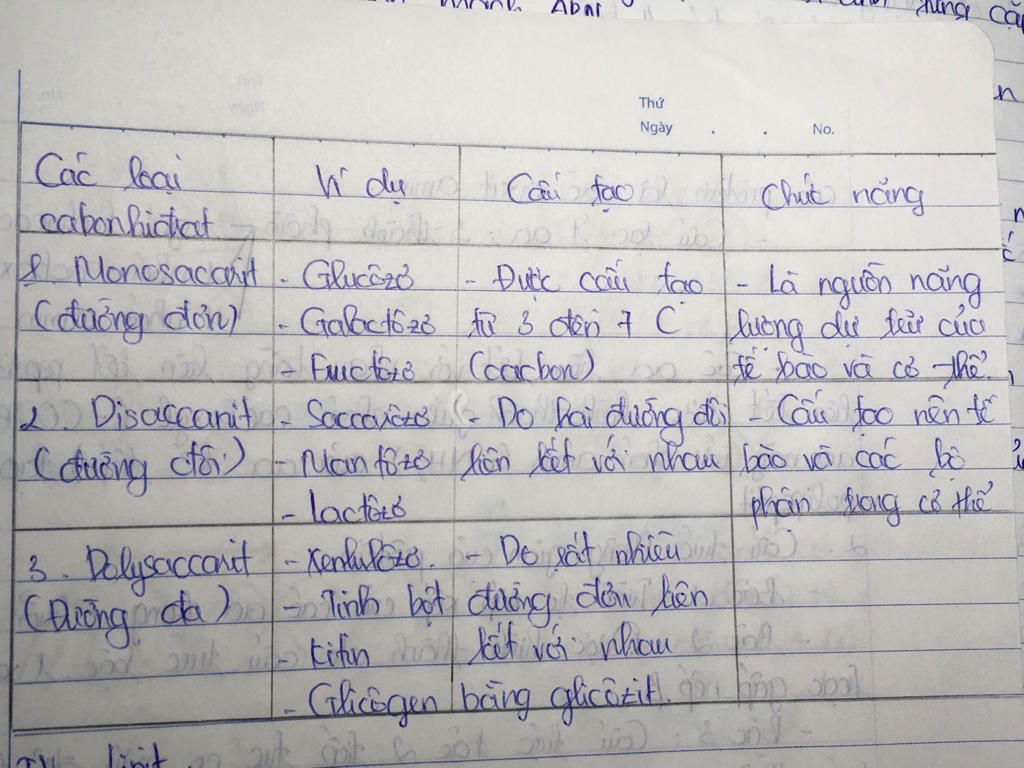 Thứ
Ngày . . No.
Các loại
cabonhiđrat
Ví dụ
Cấu tạo
Chức năng
1. Monosaccarit
(đường đơn)
- Glucôzơ
- Galactôzơ
- Fructôzơ
- Được cấu tạo
từ 3 đến 7 C
(cacbon)
- Là nguồn năng
lượng dự trữ của
tế bào và cơ thể.
2. Disaccarit
(đường đôi)
- Saccarôzơ
- Mantôzơ
- Lactôzơ
- Do hai đường đôi
liên kết với nhau
- Cấu tạo nên tế
bào và các bộ
phận trong cơ thể
3. Polysaccarit
(Đường đa)
- Xenlulôzơ.
- Tinh bột
- Kitin
- Glicôgen
- Do rất nhiều
đường đơn liên
kết với nhau
bằng glicôzit.
IV lipit